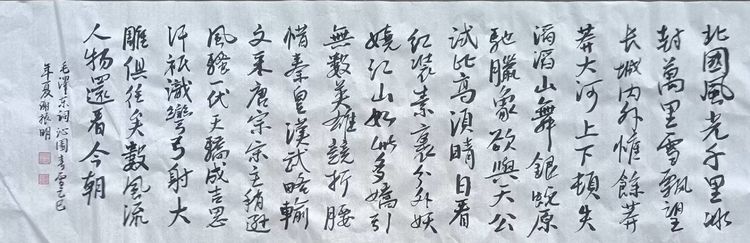 北國風光千里冰
封萬里雪飄望
長城内外惟餘莽
莽大河上下頓失
滔滔山舞銀蛇原
馳臘象欲與天公
試比高須晴日看
紅裝素裹分外妖
嬈江山如此多嬌引
無數英雄競折腰
惜秦皇漢武略輸
文采唐宗宋主稍遜
風騷一代天驕成吉思
汗祇識彎弓射大
雕俱往矣數風流
人物還看今朝
毛澤東詞沁園春雪乙巳
年夏謝振明